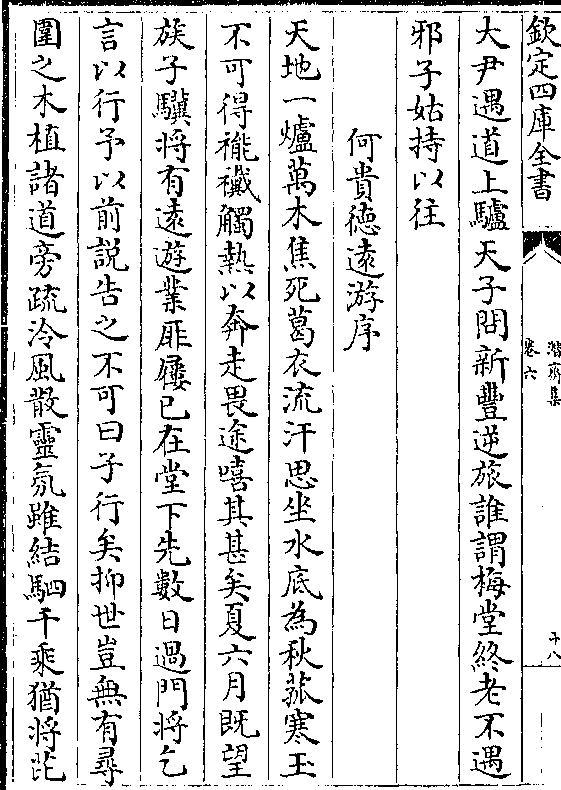 欽定四庫全書
潛齋集
卷六
十八
大尹遇道上驢天子問新豐逆旅誰謂梅堂終老不遇
邪子姑持以往
何貴德遠游序
天地一爐萬木焦死葛衣流汗思坐水底為秋菰寒玉
不可得襱襶觸熱以奔走畏途嘻其甚矣夏六月既望
族子驥將有遠遊業屝屨已在堂下先數日過門將乞
言以行予以前説告之不可曰子行矣抑世豈無有尋
圍之木植諸道旁疏泠風散靈氛雖結駟千乘猶將芘